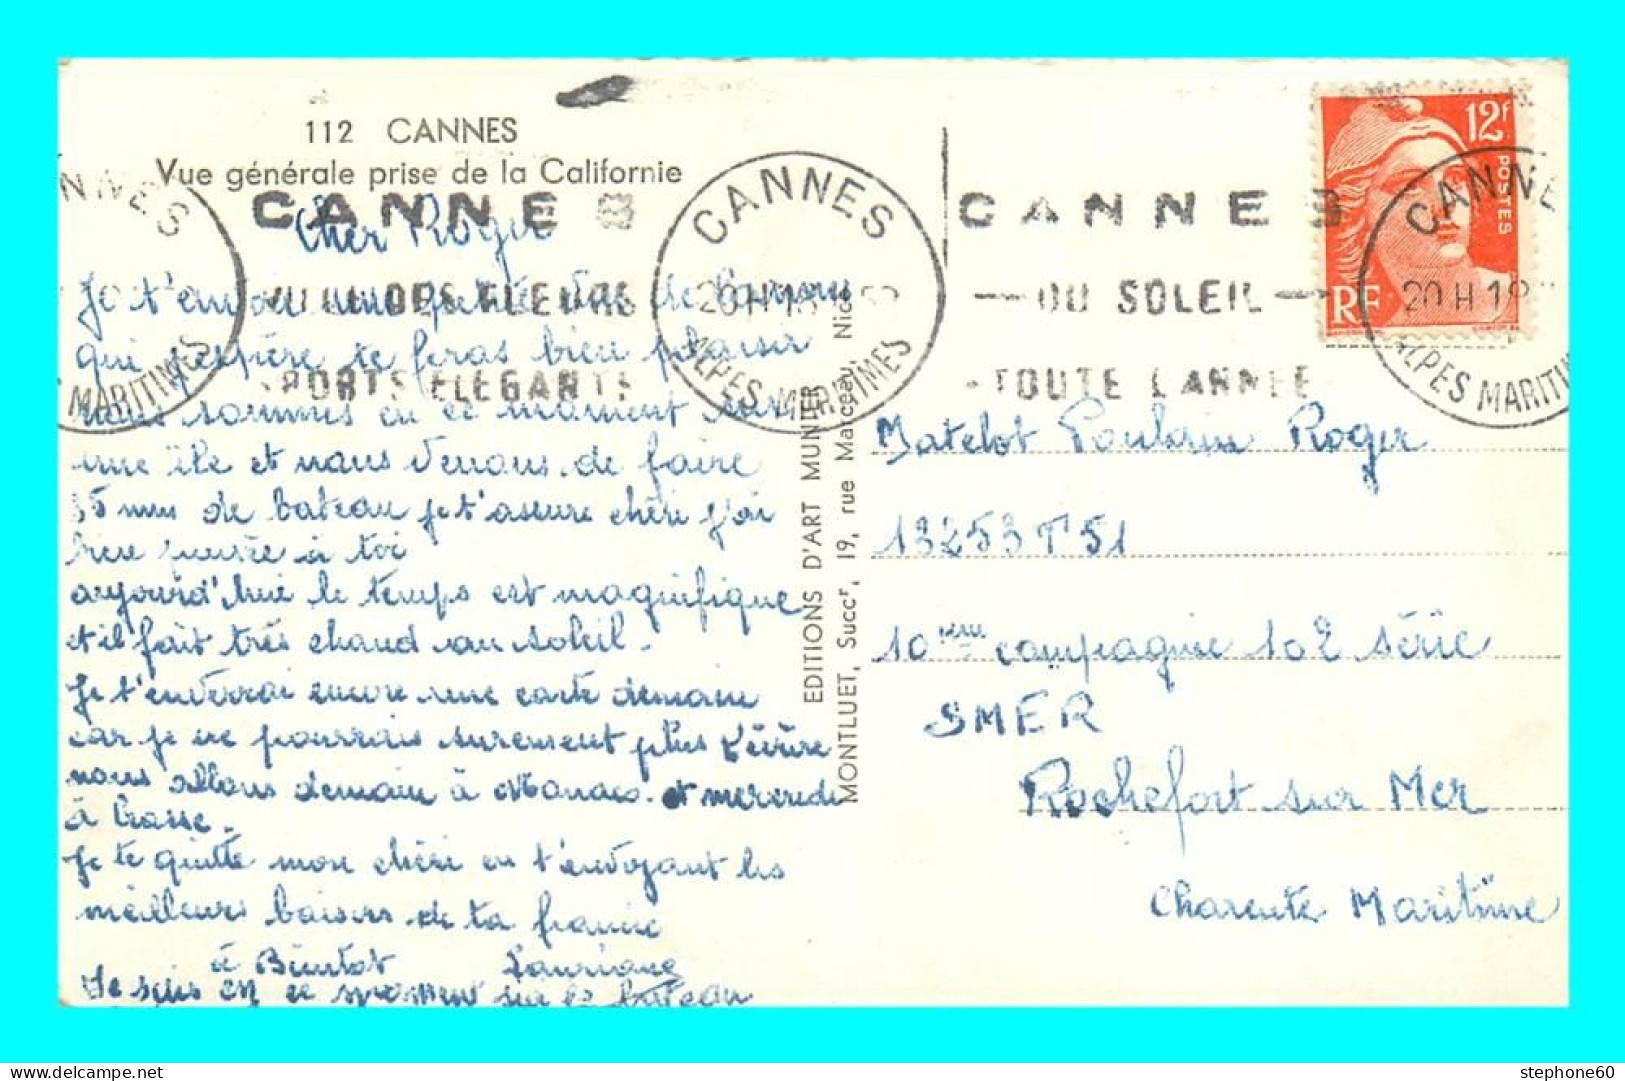 112 CANNES
Vue générale prise de la Californie
CANNES
VILLE DES FLEURS
SPORTS ELEGANTS
CANNES
20 H 18
ALPES MARITIMES
CANNES
DU SOLEIL
TOUTE L'ANNEE
12F
POSTES
RF
CANNES
20 H 18
ALPES MARITIMES
NNES
MARITIMES
Cher Roger
Je t'envoi une petite vue de
qui j'espère te feras bien plaisir
nous sommes en ce moment sur
une île et nous venons de faire
35 mns de bateau je t'assure chéri j'ai
bien pensée à toi
aujourd'hui le temps est magnifique
et il fait très chaud au soleil.
Je t'enverrai encore une carte demain
car je ne pourrais surement plus t'écrire
nous allons demain à Monaco et mercredi
à Grasse.
Je te quitte mon chéri en t'envoyant les
meilleurs baisers de ta
à Bientot
Je suis en ce moment sur le bateau
EDITIONS D'ART MUNIER
MONTLUET, Succr, 19, rue Marceau, Nice
Matelot Roger
13253 T 51
10ème compagnie 102 série
SMER
Rochefort sur Mer
Charente Maritime
stephone60